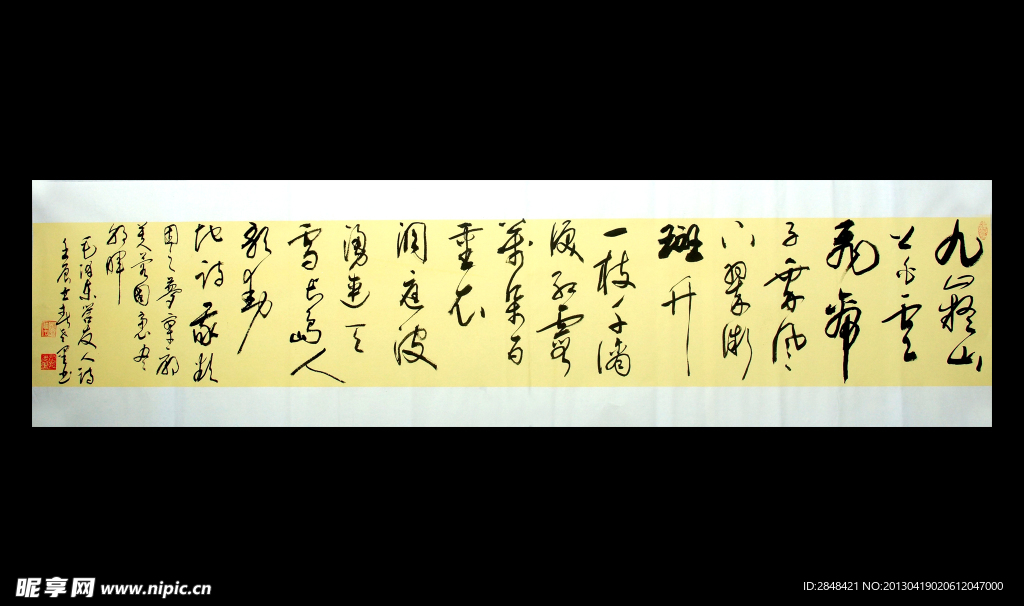 九嶷山
上白雲
飛帝
子乘風
下翠微
斑竹
一枝千滴
淚紅霞
萬朵百
重衣
洞庭波
湧連天
雪長島人
歌動
地詩我欲
因之夢寥廓
芙蓉國裏盡
朝暉
毛澤東答友人詩
壬辰
昵享网 www.nipic.cn
ID:2848421 NO:20130419020612047000